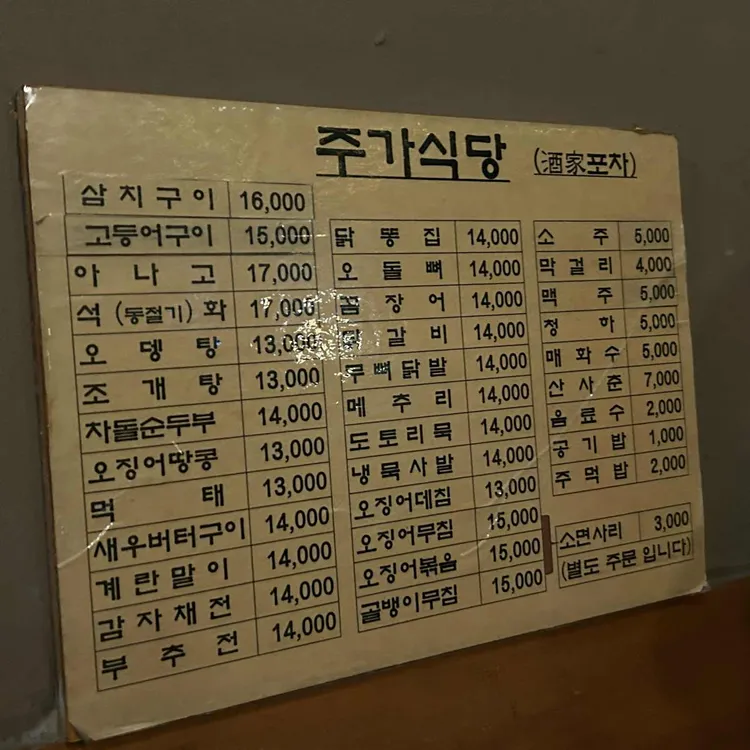 주가식당 (酒家포차)
삼치구이 16,000
고등어구이 15,000
아나고 17,000
석(동절기)화 17,000
오뎅탕 13,000
조개탕 13,000
차돌순두부 14,000
오징어땅콩 13,000
먹태 13,000
새우버터구이 14,000
계란말이 14,000
감자채전 14,000
부추전 14,000
닭똥집 14,000
오돌뼈 14,000
꼼장어 14,000
닭갈비 14,000
무뼈닭발 14,000
메추리 14,000
도토리묵 14,000
냉묵사발 14,000
오징어데침 13,000
오징어무침 15,000
오징어볶음 15,000
골뱅이무침 15,000
소주 5,000
막걸리 4,000
맥주 5,000
청하 5,000
매화수 5,000
산사춘 7,000
음료수 2,000
공기밥 1,000
주먹밥 2,000
소면사리 3,000
(별도 주문 입니다)